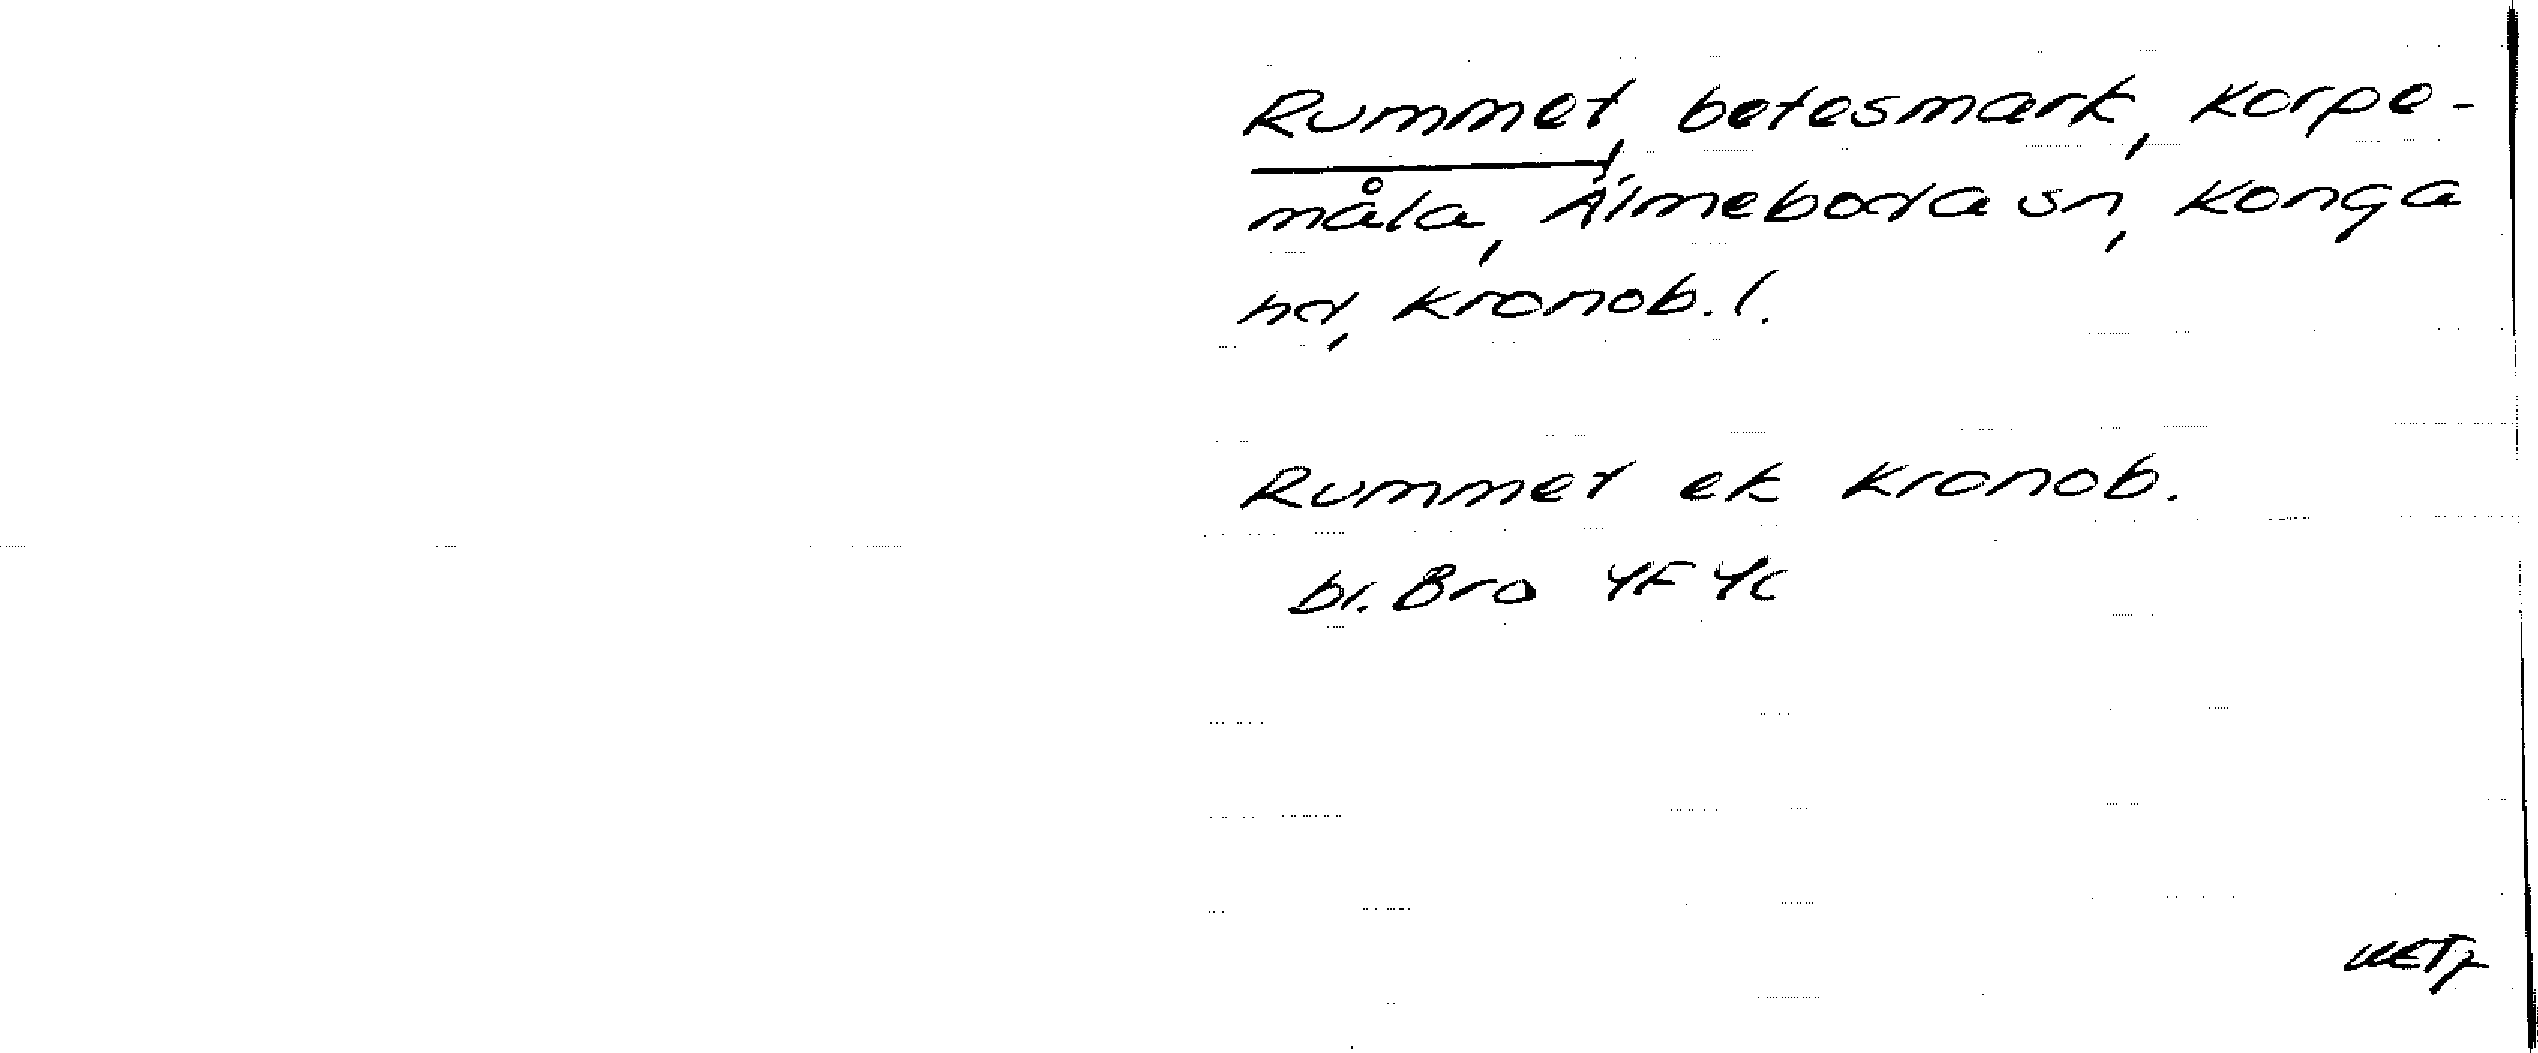 Rummet, betesmark, Korpe-
måla, Älmeboda sn, Konga
hd, Kronob. l.
Rummet ek Kronob.
bl. Bro 4F 4c